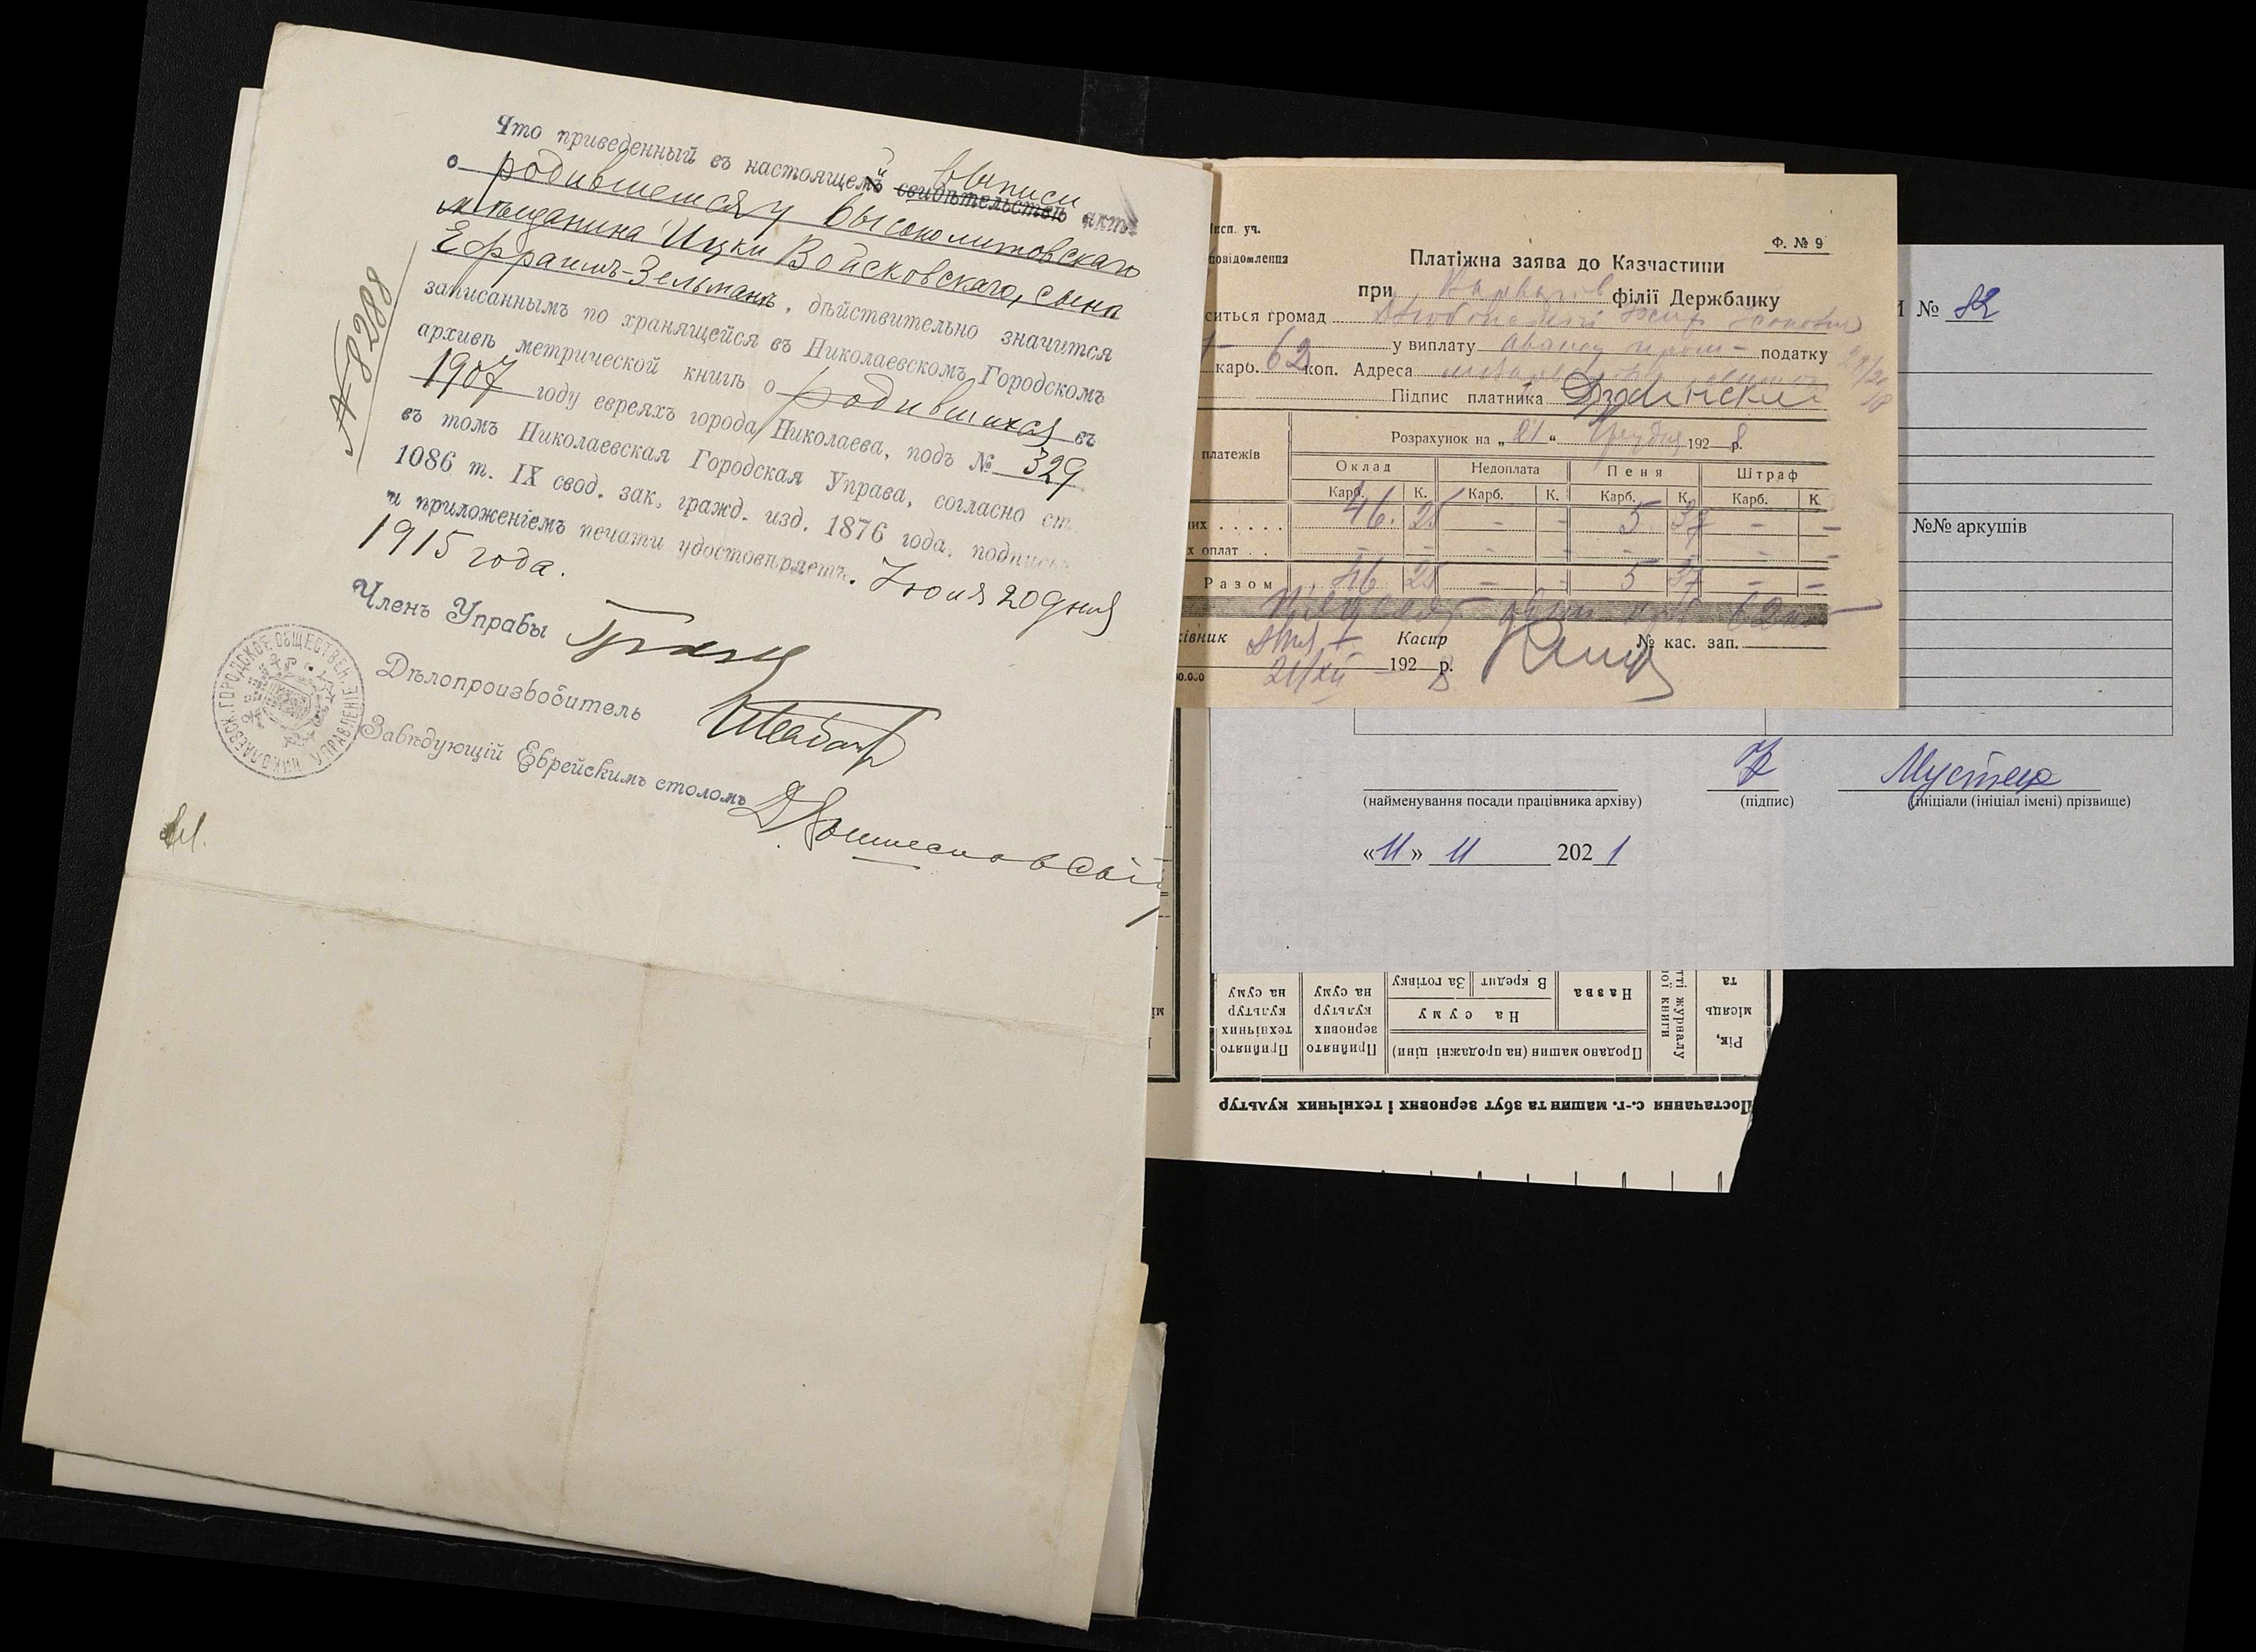 Что приведенный въ настоящей выписи
свидѣтельствѣ актъ
о родившемся у Высоколитовскаго
мѣщанина Ицки Войсковскаго, сына
Ефраимъ-Зельманъ, дѣйствительно значится
записаннымъ по хранящейся въ Николаевскомъ Городскомъ
архивѣ метрической книгѣ о родившихся въ
1907 году евреяхъ города Николаева, подъ № 329
въ томъ Николаевская Городская Управа, согласно ст.
1086 т. IX свод. зак. гражд. изд. 1876 года, подписью
и приложеніемъ печати удостовѣряетъ. Іюля 20 дня
1915 года.
№ 8288
Членъ Управы
Дѣлопроизводитель
Завѣдующій Еврейскимъ столомъ
НИКОЛАЕВСК. ГОРОДСКОЕ ОБЩЕСТВЕН. УПРАВЛЕНІЕ
Інсп. уч.
повідомлення
Ф. № 9
Платіжна заява до Казчастини
при філії Держбанку
ситься громад
у виплату авансу пром- податку
карб. 62 коп. Адреса
Підпис платника
Розрахунок на „21“ Грудня 1928 р.
платежів
Оклад Недоплата Пеня Штраф
Карб. К. Карб. К. Карб. К. Карб. К
них . . . . . 46. 25 - - 5 37 - -
х оплат . . - - - - - - - -
Разом 46 25 - - 5 37 - -
62
ківник Касир № кас. зап.
21/XII 1928 р.
№ 82
№№ аркушів
Мустец
(найменування посади працівника архіву) (підпис) (ініціали (ініціал імені) прізвище)
«11» 11 2021
Постачання с.-г. машин та збут зернових і технічних культур
Рік, місяць та
ті журналу
ої книги
Продано машин (на продажні ціни)
На суму
Назва В кредит За готівку
Прийнято зернових культур на суму
Прийнято технічних культур на суму